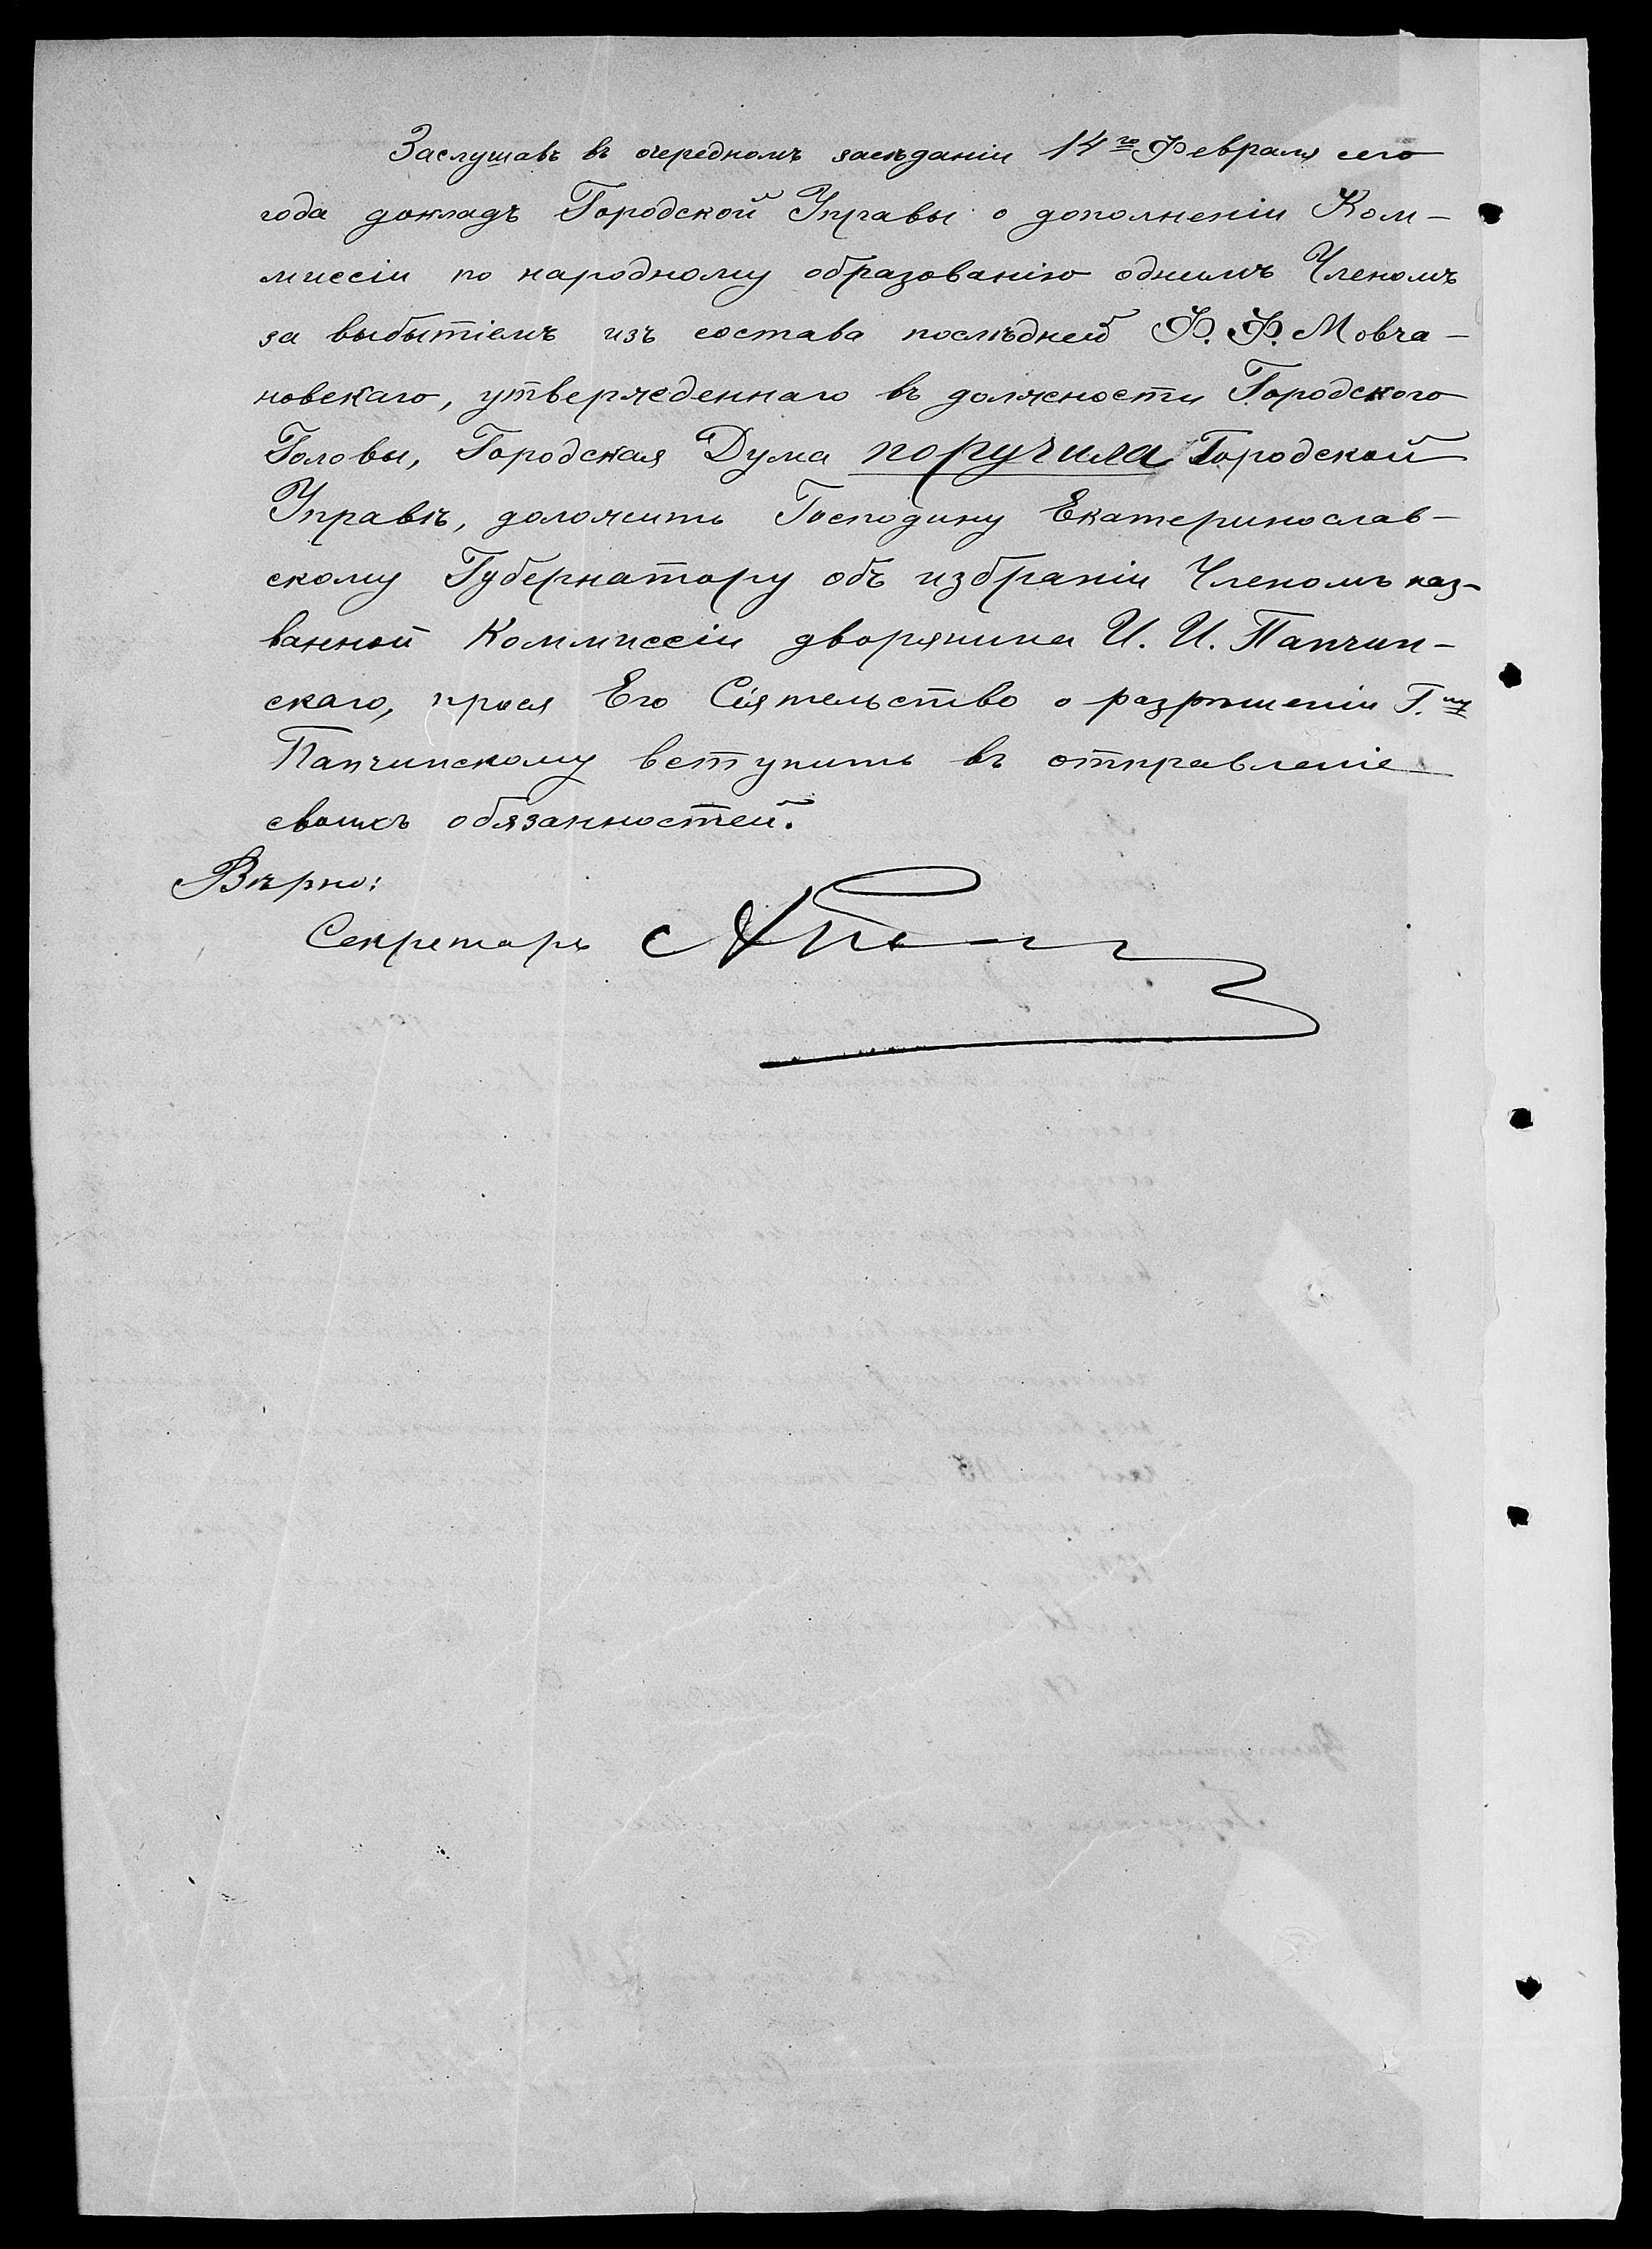 Заслушавъ въ очередномъ засѣданіи 14го Февраля сего
года докладъ Городской Управы о дополненіи Ком-
миссіи по народному образованію однимъ Членомъ
за выбытіемъ изъ состава послѣдней Ф. Ф. Мовча-
новскаго, утвержденнаго въ должности Городского
Головы, Городская Дума поручила Городской
Управѣ, доложить Господину Екатеринослав-
скому Губернатору объ избраніи Членомъ наз-
ванной Коммиссіи дворянина И. И. Папчин-
скаго, прося Его Сіятельство о разрѣшеніи Г.ну
Папчинскому вступить въ отправленіе
своихъ обязанностей.
Вѣрно:
Секретарь